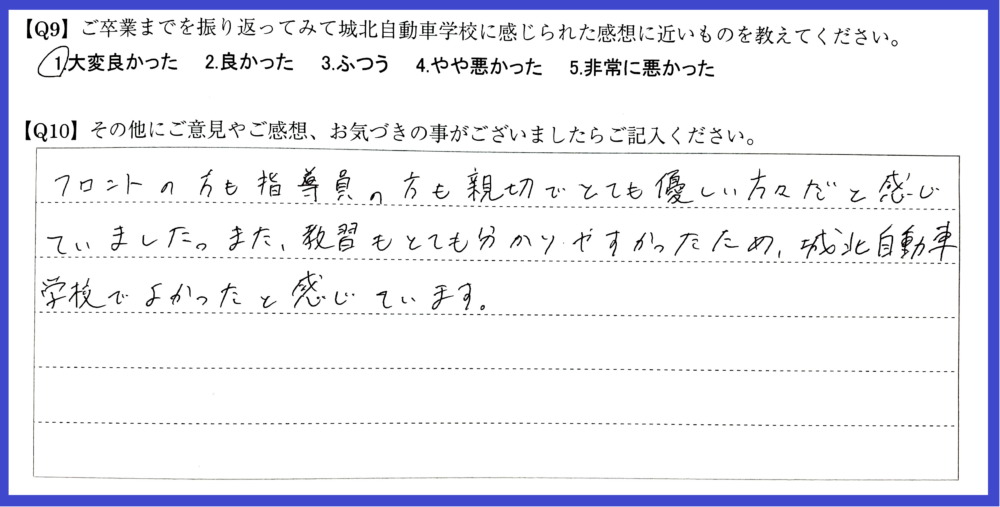 【Q9】ご卒業までを振り返ってみて城北自動車学校に感じられた感想に近いものを教えてください。
1.大変良かった 2.良かった 3.ふつう 4.やや悪かった 5.非常に悪かった
【Q10】その他にご意見やご感想、お気づきの事がございましたらご記入ください。
フロントの方も指導員の方も親切でとても優しい方々だと感じ
ていました。また、教習もとても分かりやすかったため、城北自動車
学校でよかったと感じています。